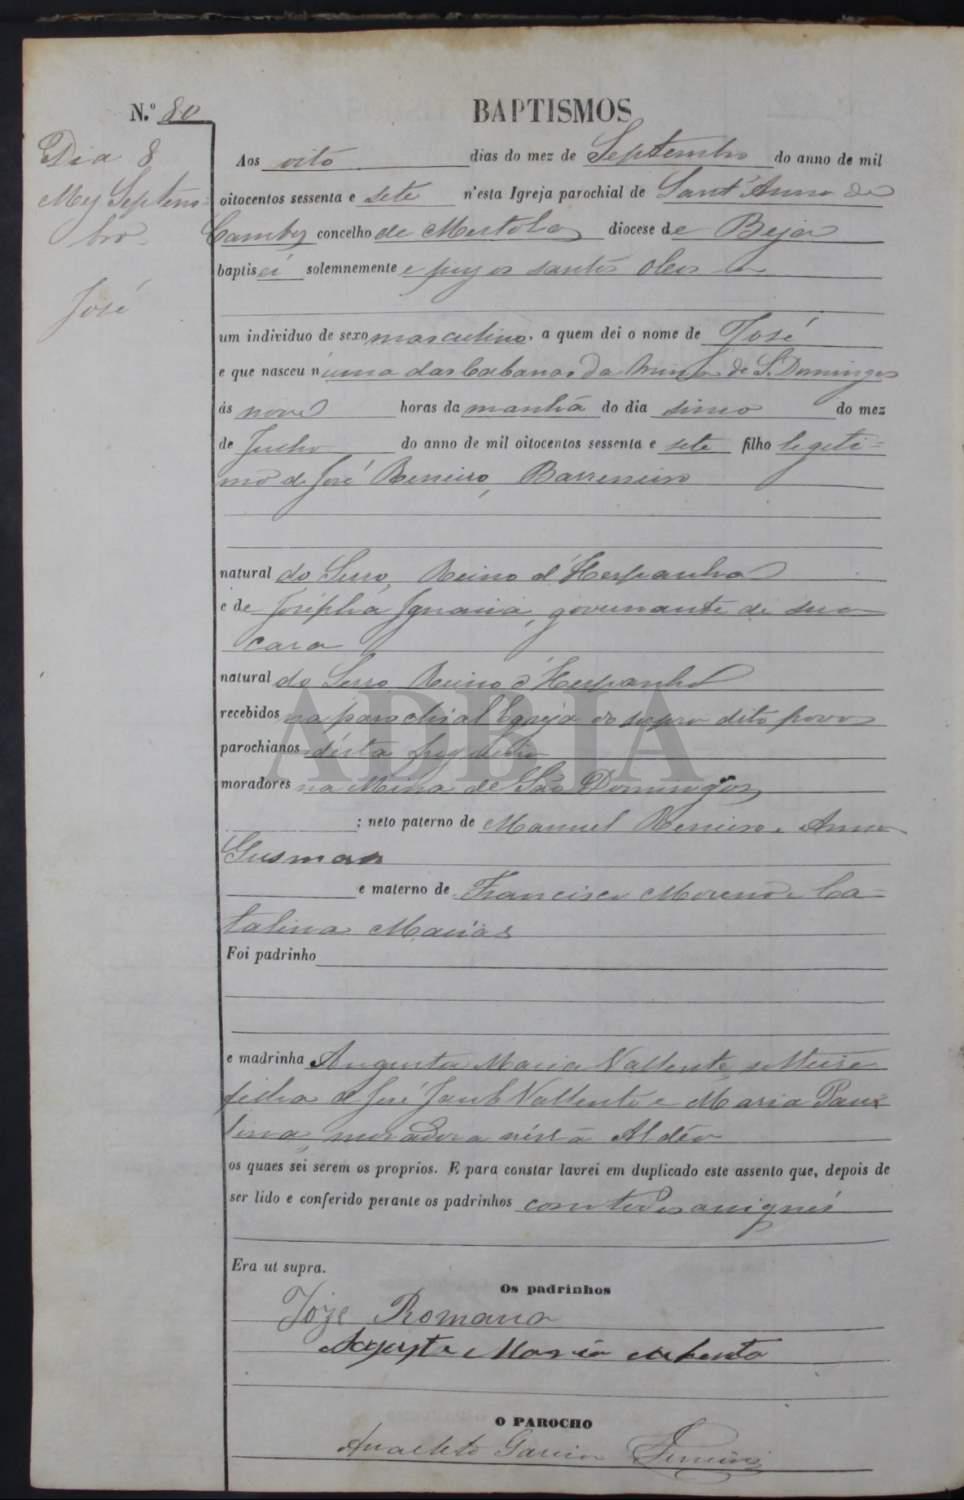 N.º 80
BAPTISMOS
Dia 8
Mez Septem=
bro
José
Aos oito dias do mez de Septembro do anno de mil
oitocentos sessenta e sete n'esta Igreja parochial de Sant'Anna de
Cambas concelho de Mertola diocese de Beja
baptisei solemnemente e puz os santos oleos
um individuo de sexo masculino, a quem dei o nome de José
e que nasceu n'uma das Cabanas da Mina de S. Domingos
ás nove horas da manhã do dia sinco do mez
de Julho do anno de mil oitocentos sessenta e sete filho legeti=
mo de José Barreneiro
natural do Serro, Reino d'Hespanha
e de Josepha Ignacia, governante de sua
casa
natural do Serro Reino d'Hespanha
recebidos na parochial Egreja do dito povo
parochianos désta freguezia
moradores na Mina de São Domingos
: neto paterno de Manuel Anna
Gusman
e materno de Francisco Moreno e Ca=
talina Macias
Foi padrinho
e madrinha Augusta Maria Vallente, solteira
filha de José Jacob Vallente e Maria Pau
lina, moradora nésta Aldéa
os quaes sei serem os proprios. E para constar lavrei em duplicado este assento que, depois de
ser lido e conferido perante os padrinhos com todos assignei
Era ut supra.
Os padrinhos
Joze Romana
Maria
O PAROCHO
Anacleto Garcia
ADBJA